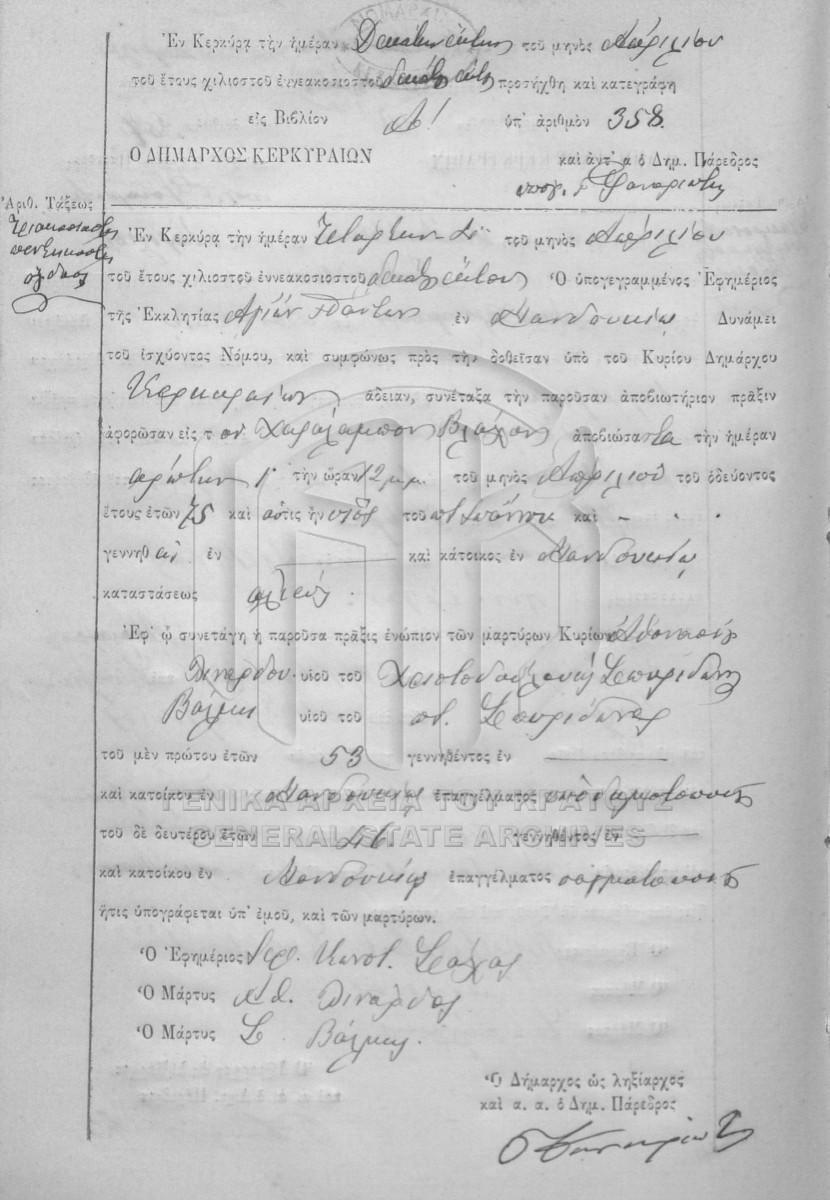 Ἐν Κερκύρᾳ τὴν ἡμέραν Δεκάτην ἕκτην τοῦ μηνὸς Ἀπριλίου
τοῦ ἔτους χιλιοστοῦ ἐννεακοσιοστοῦ δεκάτου ἕκτου προσήχθη καὶ κατεγράφη
εἰς Βιβλίον Α! ὑπ' ἀριθμὸν 358.
Ο ΔΗΜΑΡΧΟΣ ΚΕΡΚΥΡΑΙΩΝ καὶ ἀντ' α ὁ Δημ. Πάρεδρος
υπογ.
Ἀριθ. Τάξεως
Τριακοσιοστὸς
πεντηκοστὸς
ὄγδοος
Ἐν Κερκύρᾳ τὴν ἡμέραν Τετάρτην 4 τοῦ μηνὸς Ἀπριλίου
τοῦ ἔτους χιλιοστοῦ ἐννεακοσιοστοῦ δεκάτου ἕκτου Ὁ ὑπογεγραμμένος Ἐφημέριος
τῆς Ἐκκλησίας Ἁγίων Πάντων ἐν Μανδουκίῳ Δυνάμει
τοῦ ἰσχύοντος Νόμου, καὶ συμφώνως πρὸς τὴν δοθεῖσαν ὑπὸ τοῦ Κυρίου Δημάρχου
Κερκυραίων ἄδειαν, συνέταξα τὴν παροῦσαν ἀποβιωτήριον πρᾶξιν
ἀφορῶσαν εἰς τ ον Χαράλαμπον Βλάχον ἀποβιώσα ντα τὴν ἡμέραν
πρώτην 1 τὴν ὥραν 12 μ.μ. τοῦ μηνὸς Ἀπριλίου τοῦ ὁδεύοντος
ἔτους ἐτῶν 75 καὶ ὅςτις ἦν υἱὸς τοῦ π. Ἰωάννου καὶ - . .
γεννηθ εὶς ἐν καὶ κάτοικος ἐν Μανδουκίῳ
καταστάσεως ἁλιεὺς.
Ἐφ' ᾧ συνετάγη ἡ παροῦσα πρᾶξις ἐνώπιον τῶν μαρτύρων Κυρίων Ἀθανασίου
Λινάρδου υἱοῦ τοῦ Χριστοδούλου καὶ Σπυρίδωνος
υἱοῦ τοῦ π. Σπυρίδωνος
τοῦ μὲν πρώτου ἐτῶν 53 γεννηθέντος ἐν
καὶ κατοίκου ἐν Μανδουκίῳ ἐπαγγέλματος ὑποδηματοποιὸς
τοῦ δὲ δευτέρου ἐτῶν 46 γεννηθέντος ἐν
καὶ κατοίκου ἐν Μανδουκίῳ ἐπαγγέλματος σαγματοποιὸς
ἥτις ὑπογράφεται ὑπ' ἐμοῦ, καὶ τῶν μαρτύρων.
Ὁ Ἐφημέριος Ἱερ. Κωνστ.
Ὁ Μάρτυς Ἀθ. Λινάρδος
Ὁ Μάρτυς Σ.
Ὁ Δήμαρχος ὡς ληξίαρχος
καὶ α. α. ὁ Δημ. Πάρεδρος
ΓΕΝΙΚΑ ΑΡΧΕΙΑ ΤΟΥ ΚΡΑΤΟΥΣ
GENERAL STATE ARCHIVES